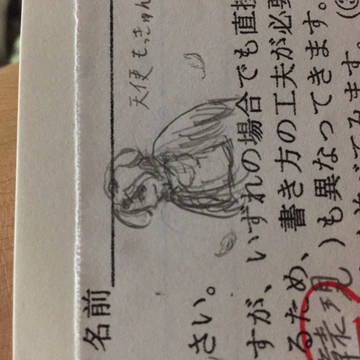 名前
天使もっきゅん
さい。
すが、いずれの場合でも直接
るため、書き方の工夫が必要
)も異なってきます。
べてみます